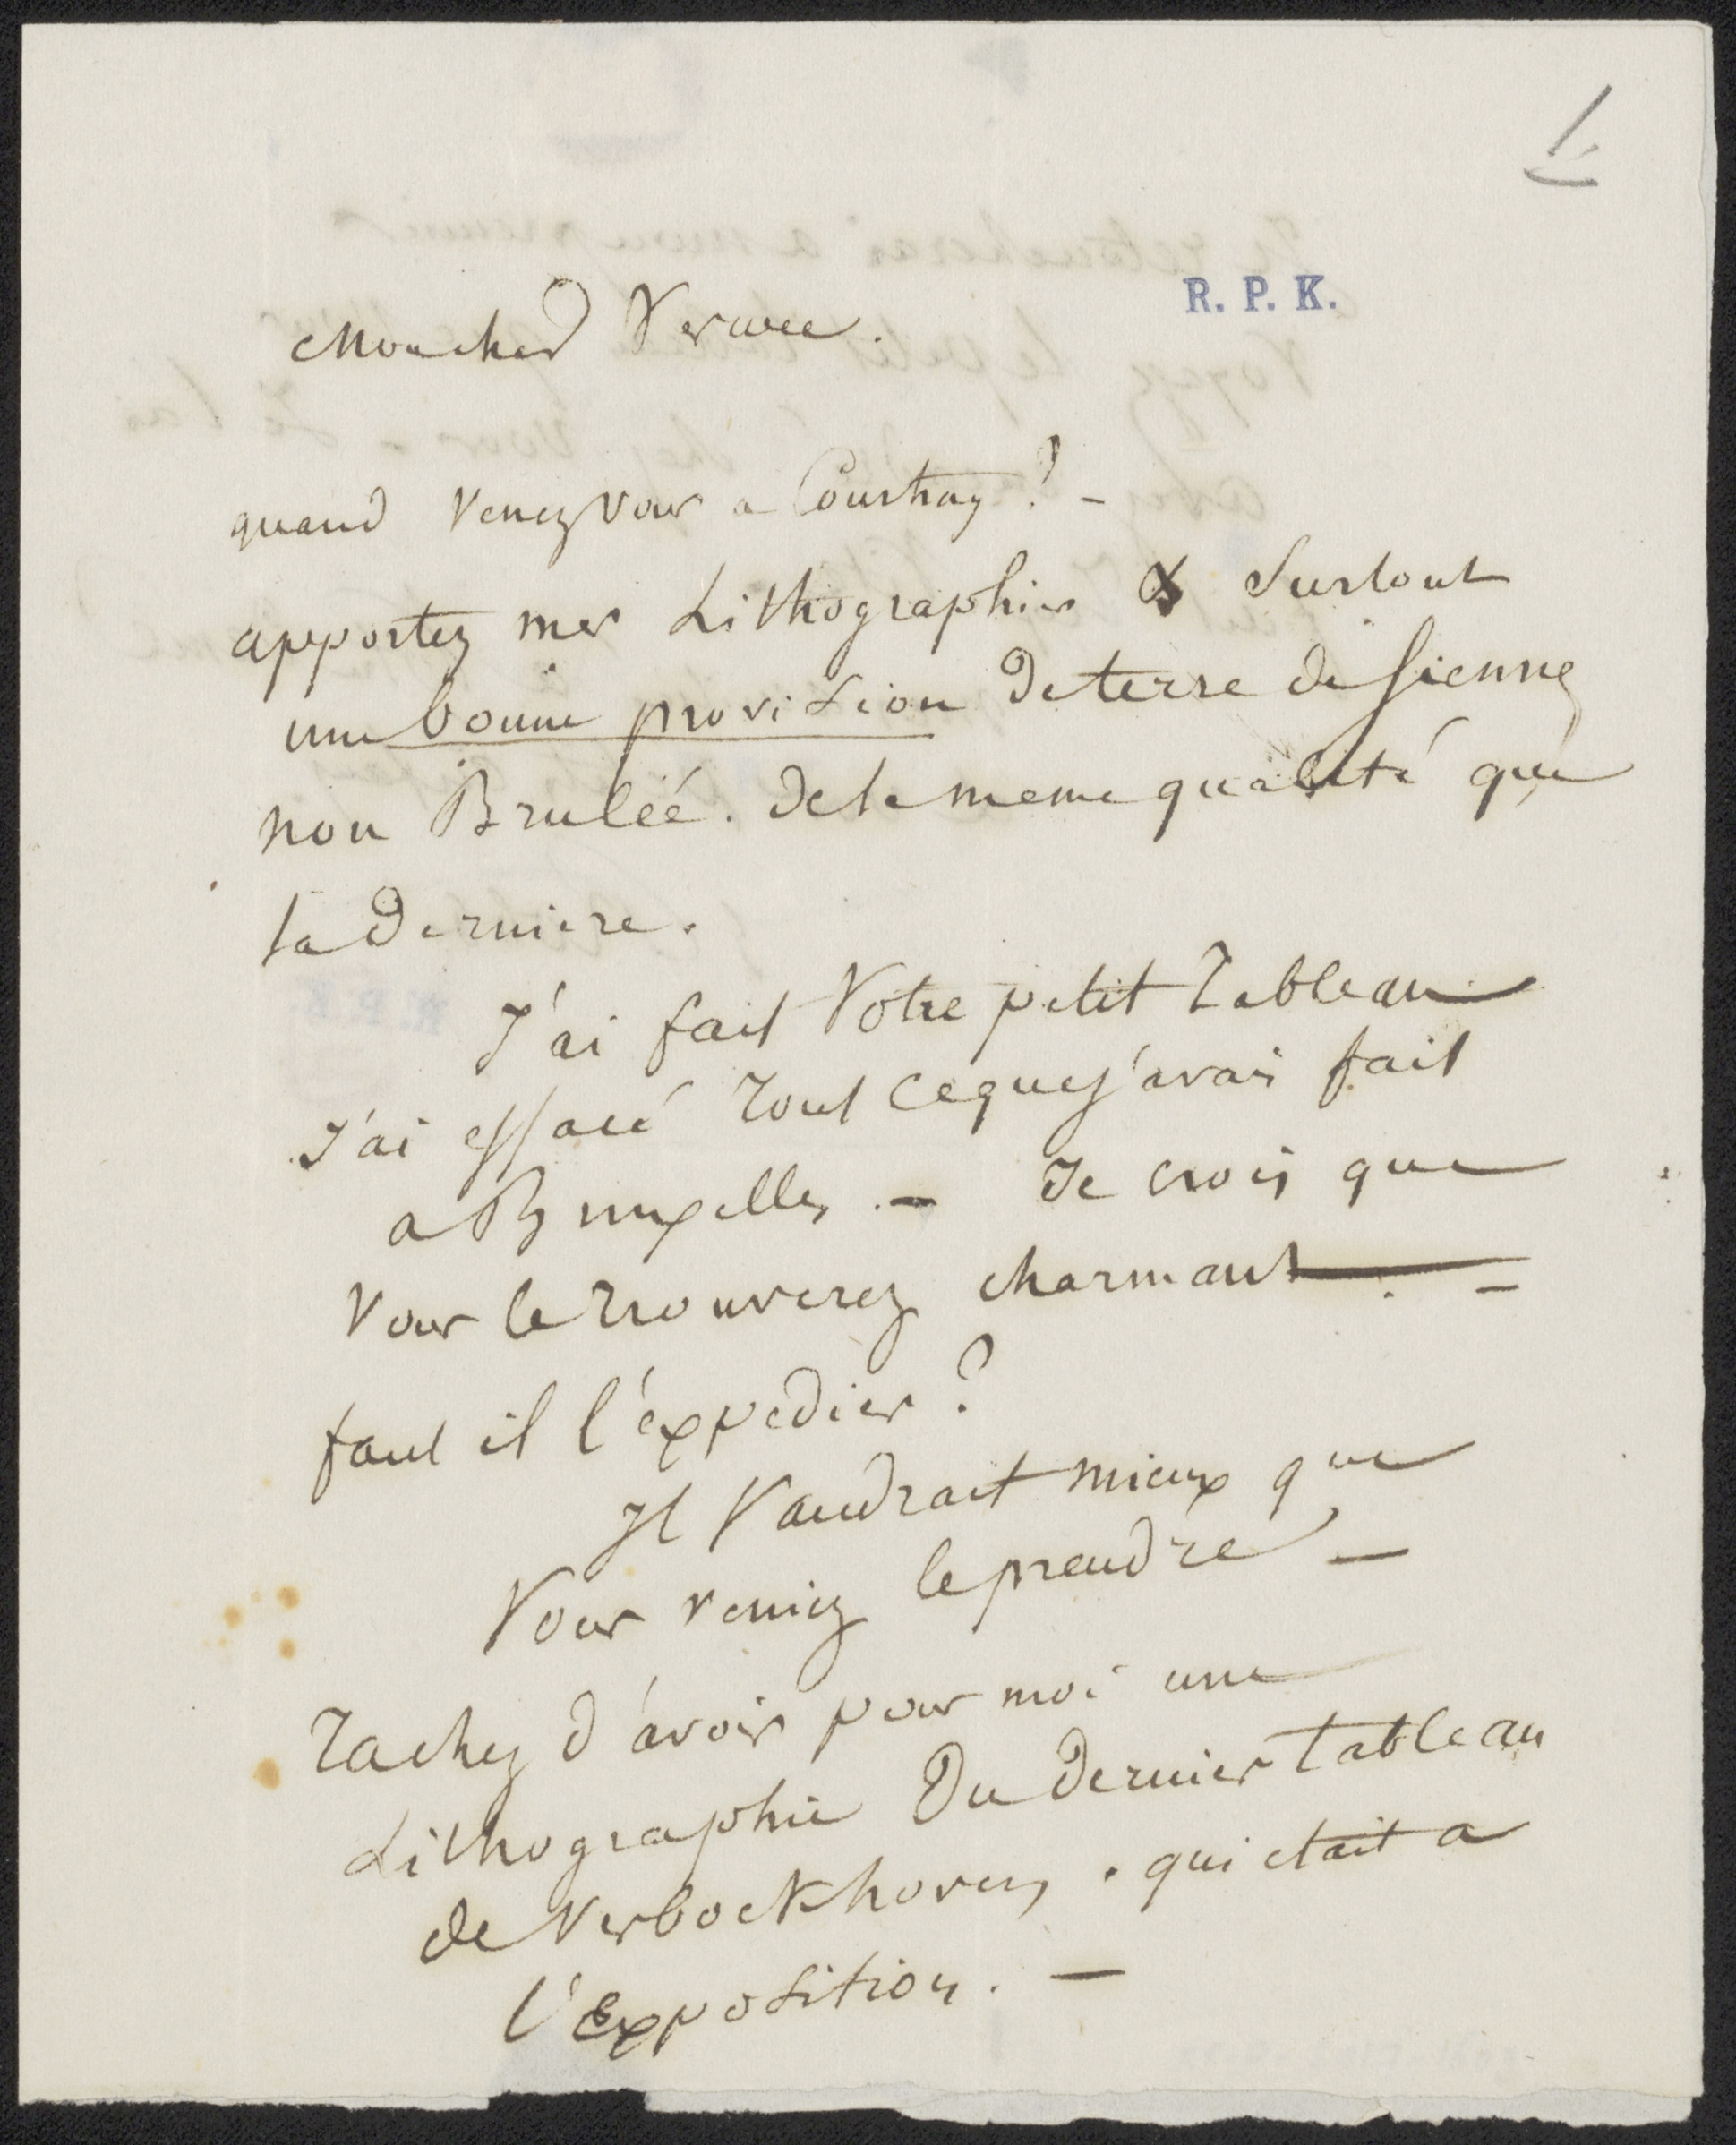 1
R. P. K.
Mon cher Verwee.
quand Venez vous a Courtray ? -
apportez mes Lithographies & Surtout
une bonne provision de terre de Sienne
non Brulée. de la meme qualité que
la Derniere.
J'ai fait Votre petit Tableau
J'ai effacé Tout ce que j'avais fait
a Bruxelles. - Je crois que
Vous le Trouverez charmant. -
faut il l'expedier ?
Il Vaudrait mieux que
Vous veniez le prendre -
Tachez d'avoir pour moi une
Lithographie Du Dernier Tableau
de Verboekhoven, . qui etait a
l'Exposition. -